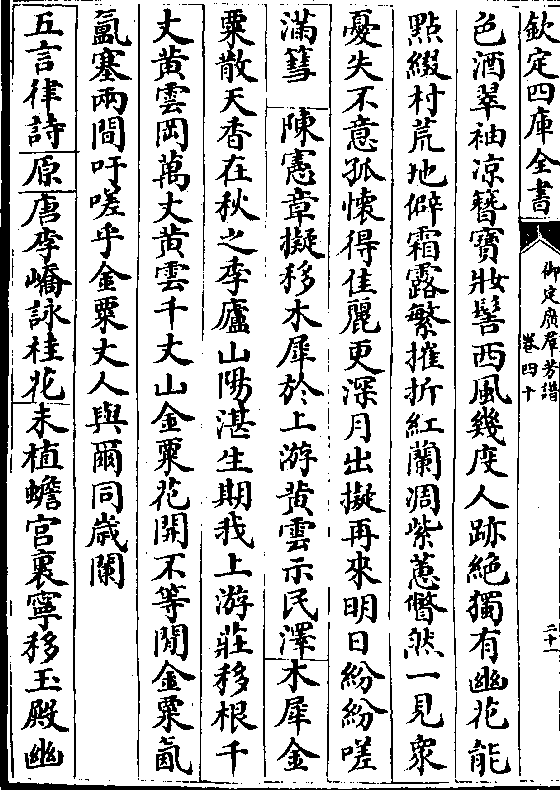 欽定四庫全書
御定廣羣芳譜
卷四十
二十一
色酒翠袖凉簪寳妝髻西風幾度人跡絶獨有幽花能
點綴村荒地僻霜露繁摧折紅蘭凋紫蕙瞥然一見衆
憂失不意孤懐得佳麗更深月出擬再來明日紛紛嗟
滿篲 陳憲章擬移木犀於上游黄雲示民澤木犀金
粟散天香在秋之季廬山陽湛生期我上游莊移根千
丈黄雲岡萬丈黄雲千丈山金粟花開不等閒金粟氤
氲塞兩間吁嗟乎金粟丈人與爾同歳闌
五言律詩原唐李嶠詠桂花未植蟾宫裏寧移玉殿幽